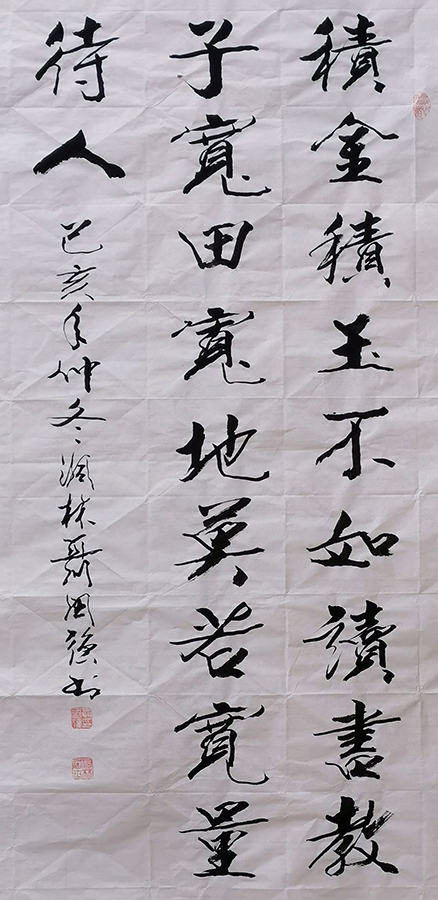 積金積玉不如讀書教
子寬田寬地莫若寬量
待人
己亥年仲冬潤林聶国強书